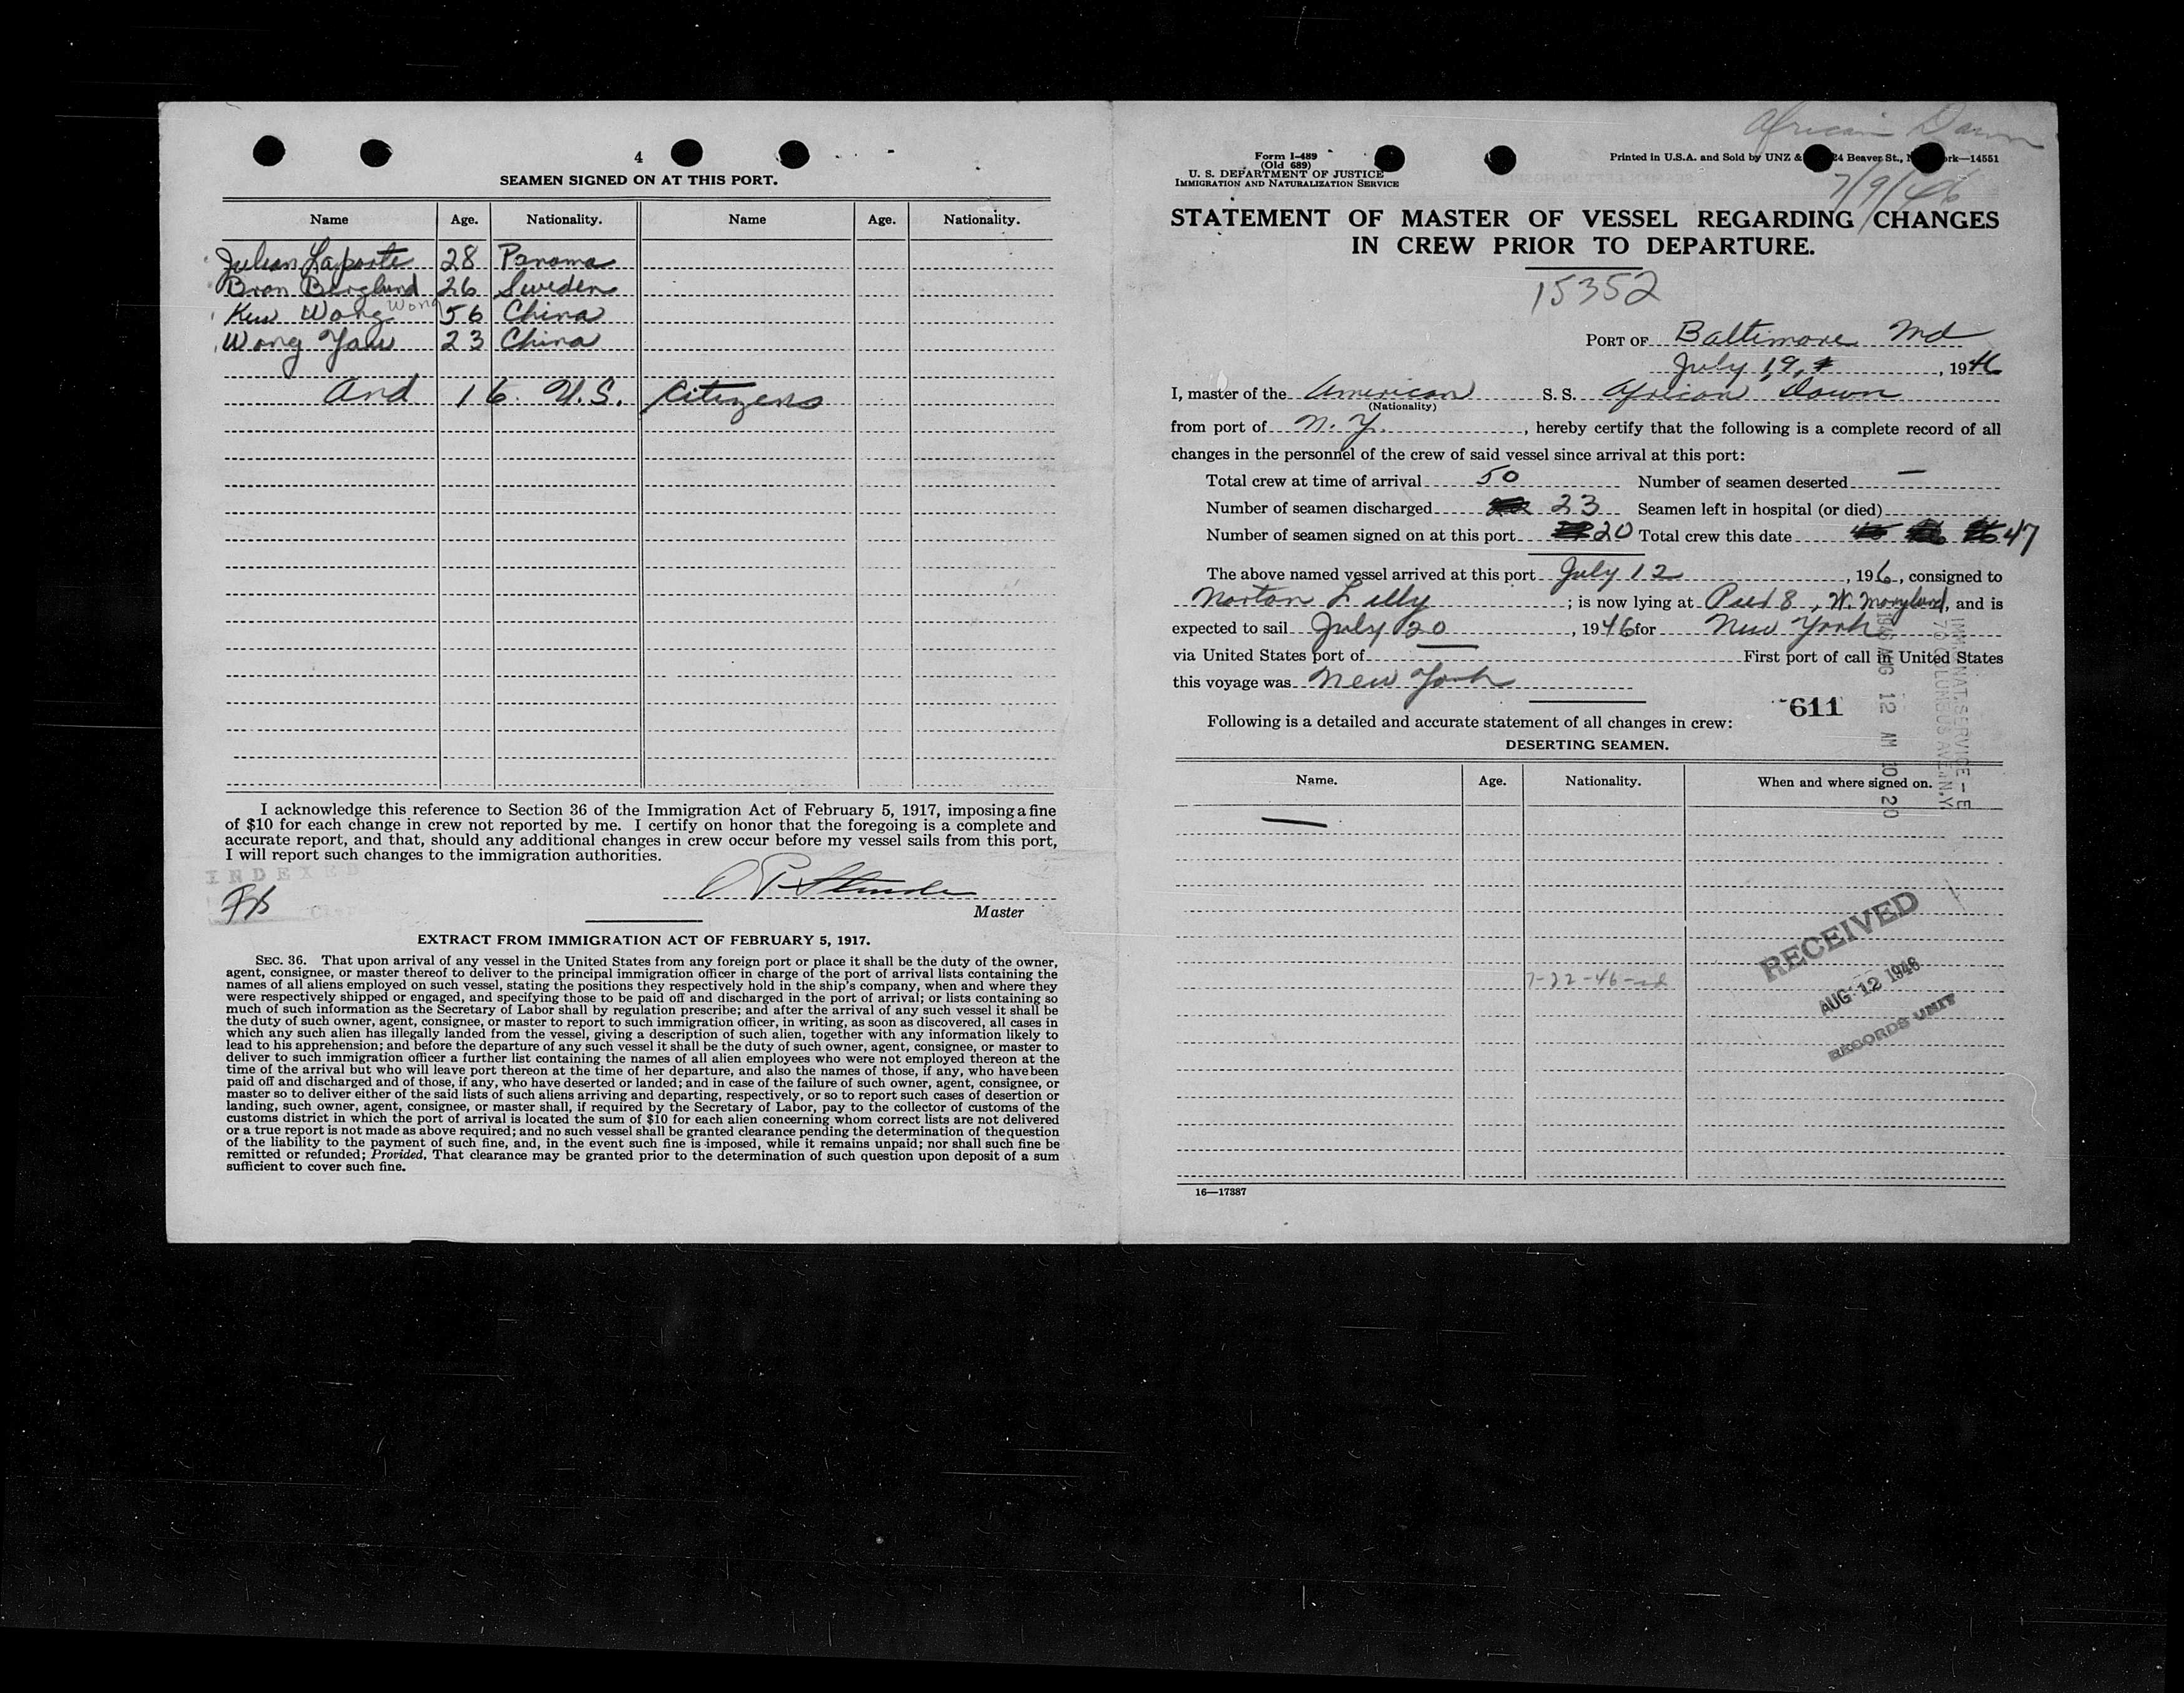 4
SEAMEN SIGNED ON AT THIS PORT.
Name Age. Nationality. Name Age. Nationality.
Julian Laporte 28 Panama
Bron Berglund 26 Sweden
Kew Wong Wong 56 China
Wong Yaw 23 China
And 16 U.S. Citizens
I acknowledge this reference to Section 36 of the Immigration Act of February 5, 1917, imposing a fine
of $10 for each change in crew not reported by me. I certify on honor that the foregoing is a complete and
accurate report, and that, should any additional changes in crew occur before my vessel sails from this port,
I will report such changes to the immigration authorities.
INDEXED
Master
EXTRACT FROM IMMIGRATION ACT OF FEBRUARY 5, 1917.
SEC. 36. That upon arrival of any vessel in the United States from any foreign port or place it shall be the duty of the owner,
agent, consignee, or master thereof to deliver to the principal immigration officer in charge of the port of arrival lists containing the
names of all aliens employed on such vessel, stating the positions they respectively hold in the ship's company, when and where they
were respectively shipped or engaged, and specifying those to be paid off and discharged in the port of arrival; or lists containing so
much of such information as the Secretary of Labor shall by regulation prescribe; and after the arrival of any such vessel it shall be
the duty of such owner, agent, consignee, or master to report to such immigration officer, in writing, as soon as discovered, all cases in
which any such alien has illegally landed from the vessel, giving a description of such alien, together with any information likely to
lead to his apprehension; and before the departure of any such vessel it shall be the duty of such owner, agent, consignee, or master to
deliver to such immigration officer a further list containing the names of all alien employees who were not employed thereon at the
time of the arrival but who will leave port thereon at the time of her departure, and also the names of those, if any, who have been
paid off and discharged and of those, if any, who have deserted or landed; and in case of the failure of such owner, agent, consignee, or
master so to deliver either of the said lists of such aliens arriving and departing, respectively, or so to report such cases of desertion or
landing, such owner, agent, consignee, or master shall, if required by the Secretary of Labor, pay to the collector of customs of the
customs district in which the port of arrival is located the sum of $10 for each alien concerning whom correct lists are not delivered
or a true report is not made as above required; and no such vessel shall be granted clearance pending the determination of the question
of the liability to the payment of such fine, and, in the event such fine is imposed, while it remains unpaid; nor shall such fine be
remitted or refunded; Provided, That clearance may be granted prior to the determination of such question upon deposit of a sum
sufficient to cover such fine.
African Dawn
7/9/46
Form I-489
(Old 689)
U. S. DEPARTMENT OF JUSTICE
IMMIGRATION AND NATURALIZATION SERVICE
Printed in U.S.A. and Sold by UNZ & 24 Beaver St., N rk—14551
STATEMENT OF MASTER OF VESSEL REGARDING CHANGES
IN CREW PRIOR TO DEPARTURE.
15352
PORT OF Baltimore Md
July 19, 1946
I, master of the American S. S. African Dawn
(Nationality)
from port of N. Y. , hereby certify that the following is a complete record of all
changes in the personnel of the crew of said vessel since arrival at this port:
Total crew at time of arrival 50 Number of seamen deserted —
Number of seamen discharged 23 Seamen left in hospital (or died)
Number of seamen signed on at this port 20 Total crew this date 47
The above named vessel arrived at this port July 12 , 196 , consigned to
Norton Lilly ; is now lying at Pier 8, W. Maryland, and is
expected to sail July 20 , 1946 for New York
via United States port of — First port of call in United States
this voyage was New York
611
Following is a detailed and accurate statement of all changes in crew:
DESERTING SEAMEN.
Name. Age. Nationality. When and where signed on.
—
IMM. NAT. SERVICE - E
70 COLUMBUS AVE. N.Y.
1946 AUG 12 AM 10 20
RECEIVED
AUG 12 1946
RECORDS UNIT
7-22-46
16—17387